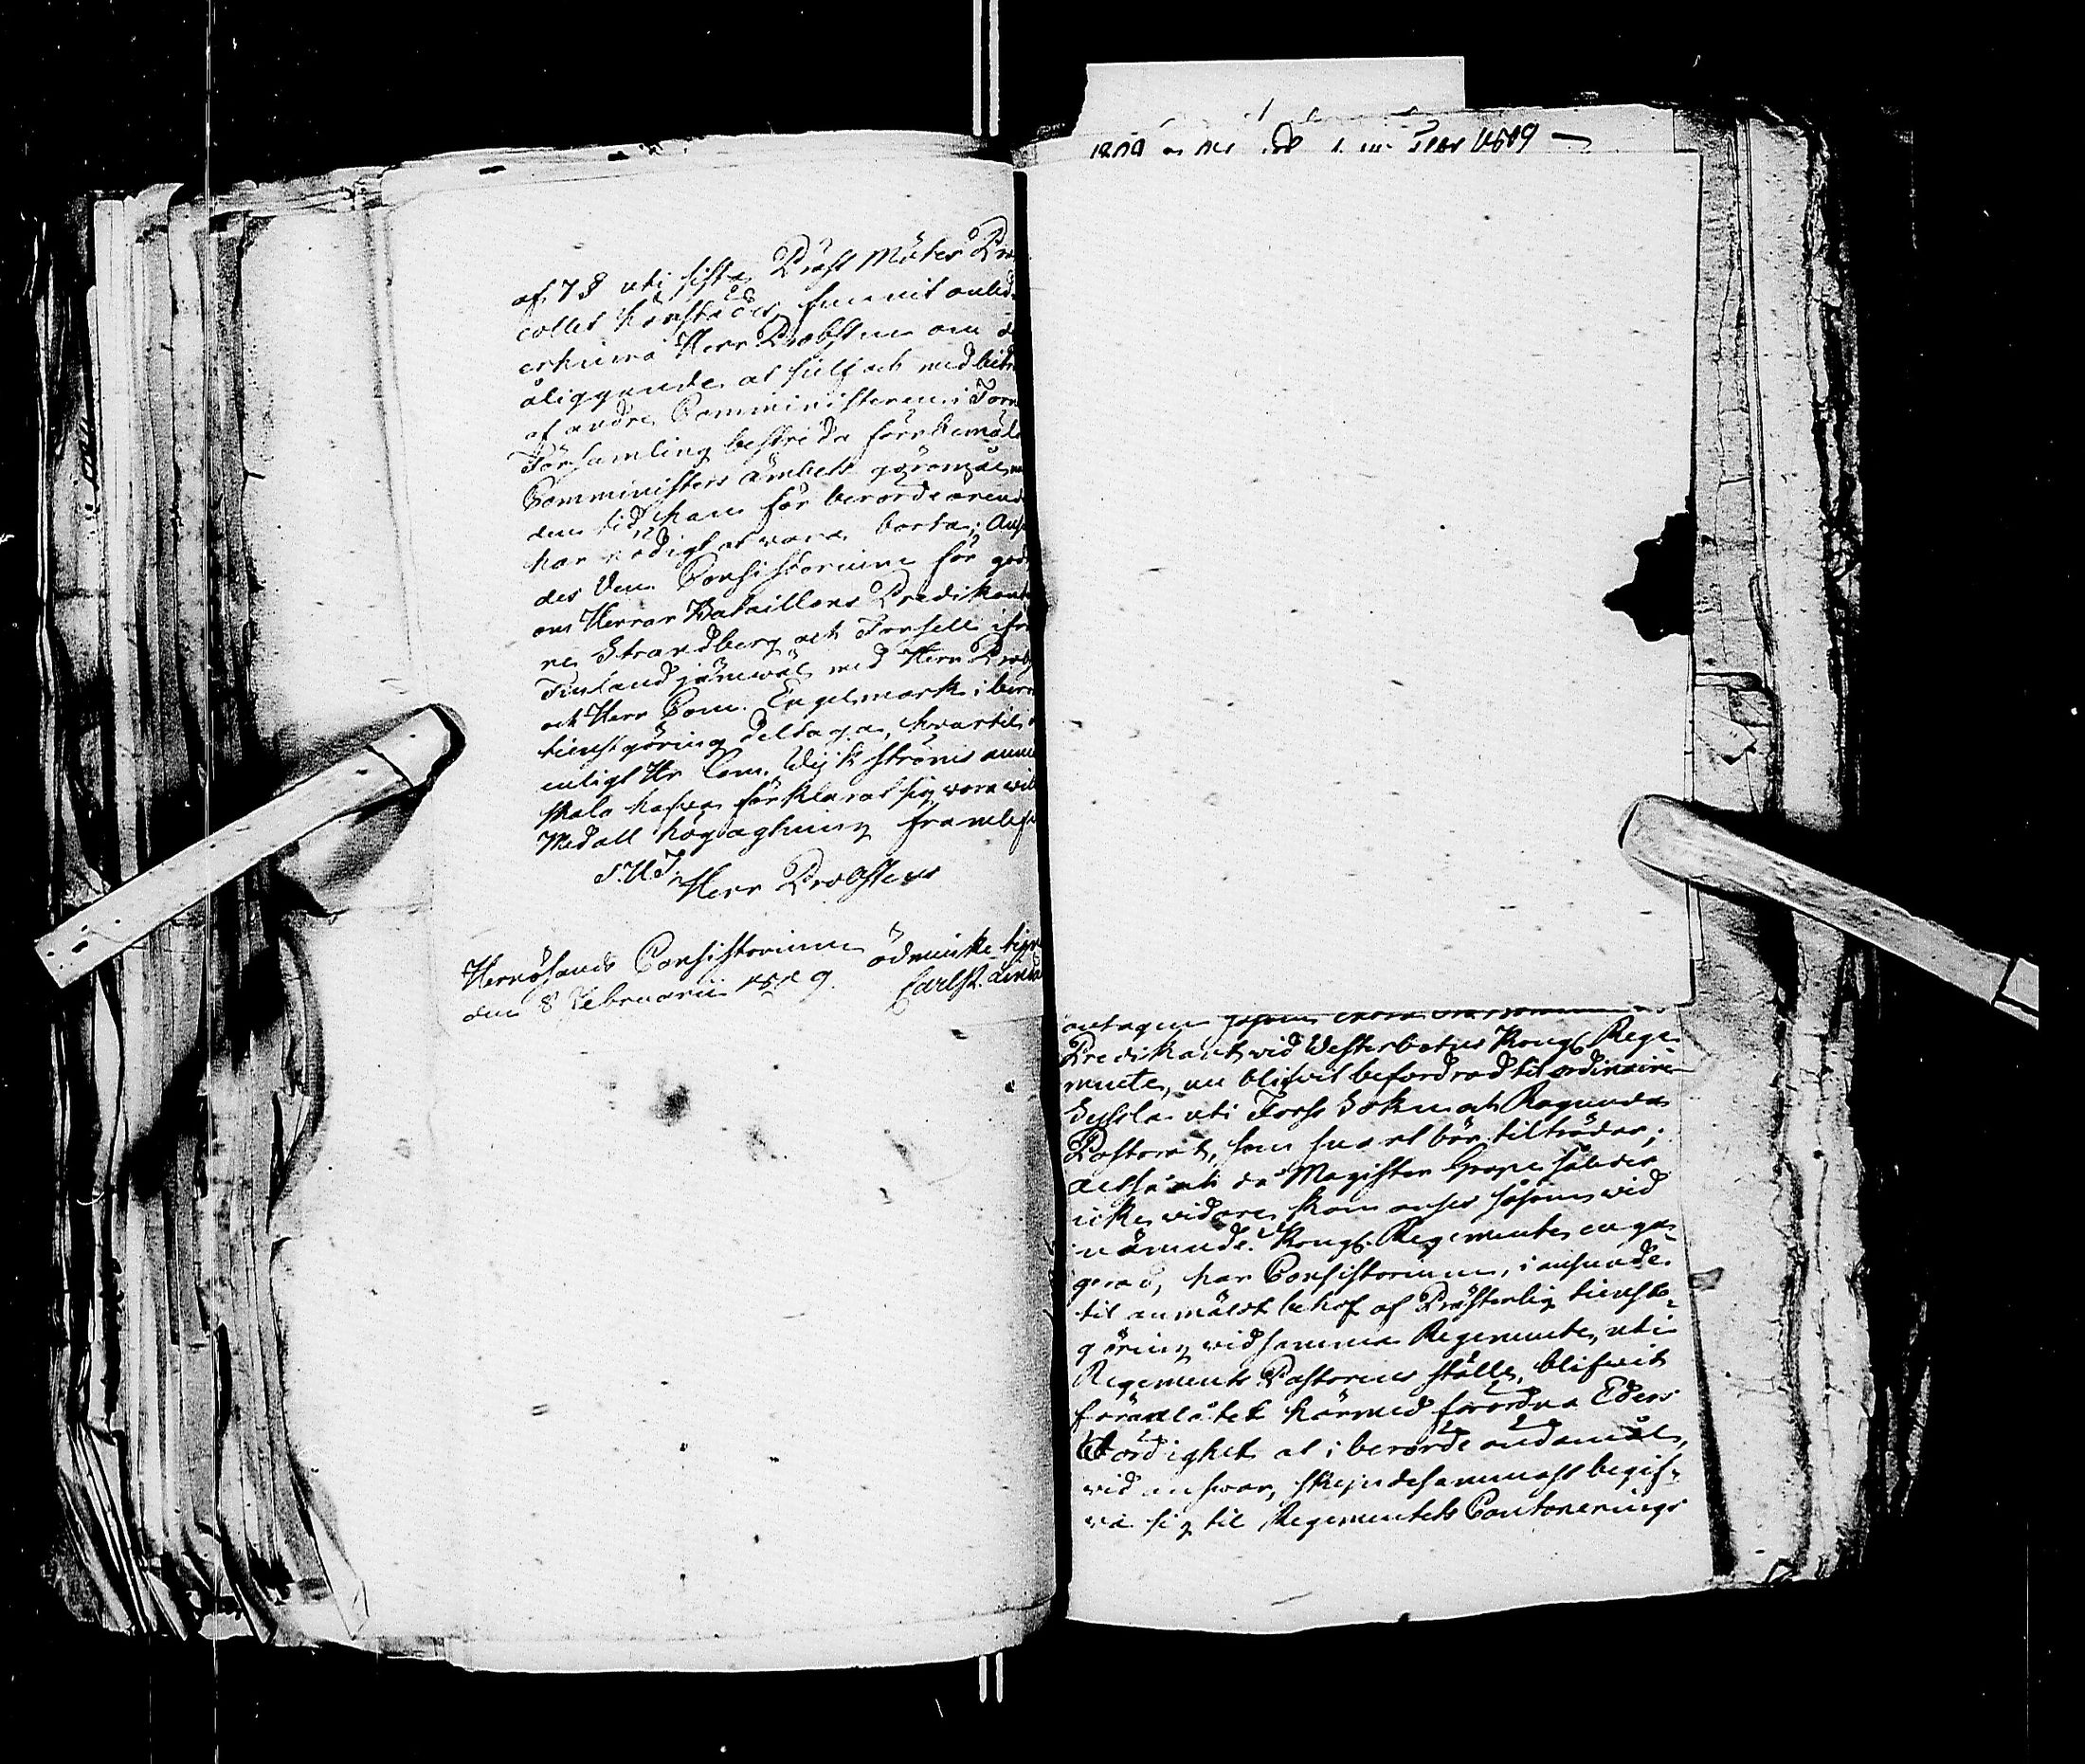 af 7 § uti sista Präst Mötes Pro
collet härstädes funnit anled
erhindra Herr Probsten om
åliggande at sielf och med biträ
af andre Comministeren i Torn
Församling bestrida förstemälde
Comministers ämbets göromål,
den tid, han för berörde ärend
har nödigt at vara borta; Ans
des Ven. Consistorium för godt
om Herrar Bataillons Predikante
ne Strandberg och Forsell ifrån
Finland jämwäl med Herr Prob
och Herr Com. Engelmark i berö
tienstgöring deltaga, hwartil
enligt Hr Com. Wikströms anmä
skola hafwa förklarat sig vara wil
Med all högagtning framlef
S. H. T.
Herr Probstens
Hernösands Consistorium ödmiuke tien
den 8 Februarii 1809. Carl
1809 1809 —
antagen såsom extra ordinarie
Predikant vid Westerbottns Kongl. Rege-
mente, nu blifvit befordrad til ordinairie
Sysla uti Forss Sokn och Ragunda
Pastorat, som snart bör tilträdas;
altså och då Magister Grape således
icke vidare kan anses såsom vid
nämnde Kongl. Regemente enga-
gerad, har Consistorium, i anseende
til anmäldt behof af Prästerlig tienst-
göring vid samma Regemente, uti
Regements Pastorens ställe, blifvit
föranlåtet härmed förordna Eders
Wördighet at i berörde ändamål,
vid answar, skyndesammast begif-
va sig til Regementets Cantonerings